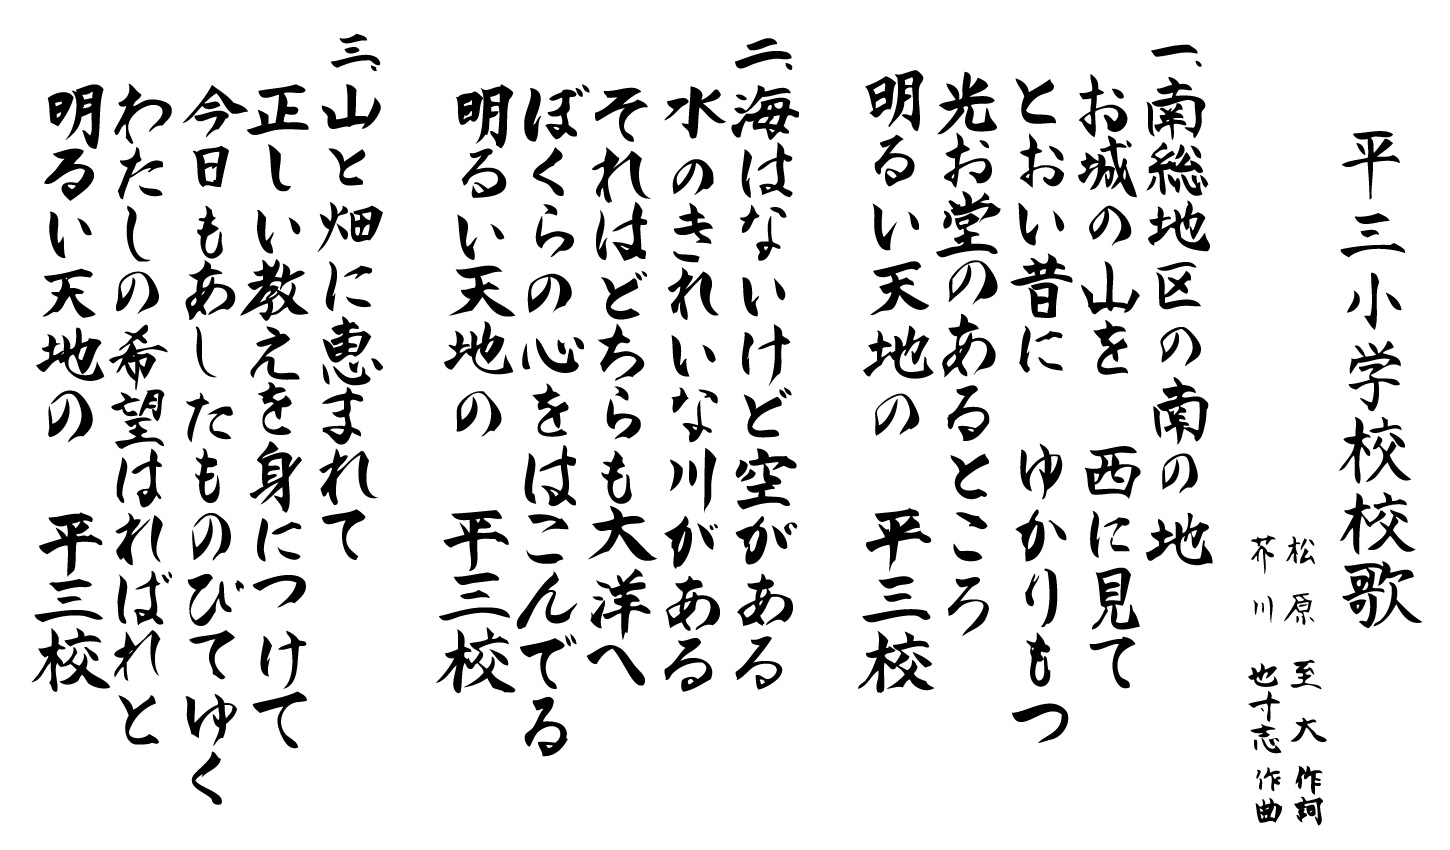 平三小学校校歌
松原 至大 作詞
芥川 也寸志 作曲
一、南総地区の南の地
お城の山を 西に見て
とおい昔に ゆかりもつ
光お堂のあるところ
明るい天地の 平三校
二、海はないけど空がある
水のきれいな川がある
それはどちらも大洋へ
ぼくらの心をはこんでる
明るい天地の 平三校
三、山と畑に恵まれて
正しい教えを身につけて
今日もあしたものびてゆく
わたしの希望はればれと
明るい天地の 平三校